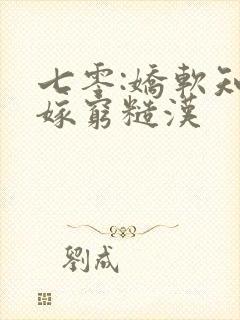 七零:嬌軟知
嫁窮糙漢
劉成